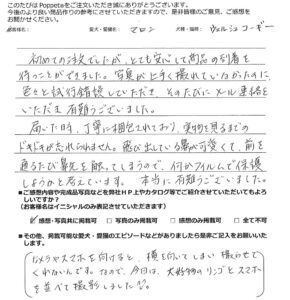 このたびはPoppeteをご注文いただき誠にありがとうございます。
今後のより良い商品作りの参考にさせていただきますので、是非皆様のご意見、ご感想を
お聞かせください。
愛犬・愛猫名: マロン 犬種・猫種: ウェルシュコーギー
初めての注文でしたが、とても安心して商品の到着を
待つことができました。写真が上手く撮れていなかったのに、
色々と試行錯誤していただき、そのたびにメール連絡を
いただき有難うございました。
届いた時、丁寧に梱包されており、実物を見るまでの
ドキドキが忘れられません。飛び出している鼻が可愛くて、前を
通るたび鼻先を触ってしまうので、何かフィルムで保護
しようかと考えています。本当に有難うございました。
■ご感想内容や完成品写真などを弊社HP上やカタログ等でご紹介させていただいてもよろ
しいですか?
(お客様名はイニシャルのみ表記させていただきます)
感想・写真共に掲載可 写真のみ掲載可 感想のみ掲載可 全て不可
■その他、掲載可能な愛犬・愛猫のエピソードなどがありましたら是非ご記入をお願いいた
します。
カメラやスマホを向けると、横を向いてしまい撮らせて
くれないんです。なので、今日は、大好物のリンゴとスマホ
を並べて撮影しました